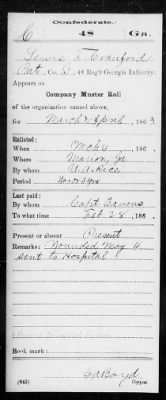 Confederate.
C 48 Ga.
Lewis T Crawford
Pvt, Co. , 48 Reg't Georgia Infantry.
Appears on
Company Muster Roll
of the organization named above,
for March & April, 186 3
Enlisted:
When Mch 4, 186
Where Macon, Ga
By whom
Period 3 yrs
Last paid:
By whom Capt
To what time Feb 28, 186
Present or absent Present
Remarks: Wounded May 4
sent to Hospital
Book mark:
(642) Copyist.